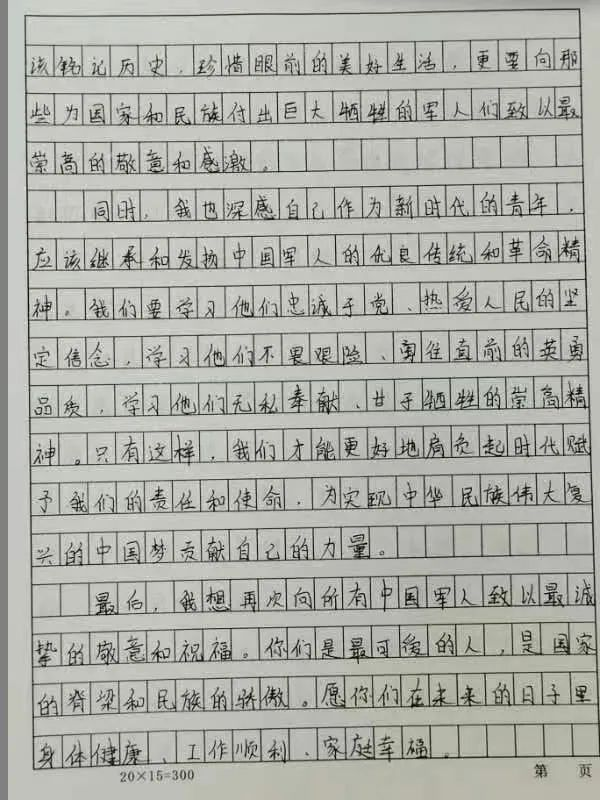 该铭记历史，珍惜眼前的美好生活，更要向那
些为国家和民族付出巨大牺牲的军人们致以最
崇高的敬意和感激。
同时，我也深感自己作为新时代的青年，
应该继承和发扬中国军人的优良传统和革命精
神。我们要学习他们忠诚于党、热爱人民的坚
定信念，学习他们不畏艰险、勇往直前的英勇
品质，学习他们无私奉献、甘于牺牲的崇高精
神。只有这样，我们才能更好地肩负起时代赋
予我们的责任和使命，为实现中华民族伟大复
兴的中国梦贡献自己的力量。
最后，我想再次向所有中国军人致以最诚
挚的敬意和祝福。你们是最可爱的人，是国家
的脊梁和民族的骄傲。愿你们在未来的日子里
身体健康、工作顺利、家庭幸福。
20×15=300 第 页